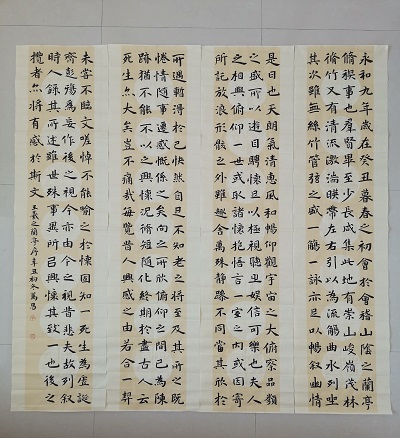 永和九年歲在癸丑暮春之初會於會稽山陰之蘭亭
脩禊事也羣賢畢至少長咸集此地有崇山峻嶺茂林
脩竹又有清流激湍暎帶左右引以為流觴曲水列坐
其次雖無絲竹管弦之盛一觴一詠亦足以暢敘幽情
是日也天朗氣清惠風和暢仰觀宇宙之大俯察品類
之盛所以遊目騁懷足以極視聽之娛信可樂也夫人
之相與俯仰一世或取諸懷抱悟言一室之內或因寄
所託放浪形骸之外雖趣舍萬殊靜躁不同當其欣於
所遇暫得於己快然自足不知老之將至及其所之既
惓情隨事遷感慨係之矣向之所欣俯仰之間已為陳
跡猶不能不以之興懷況脩短隨化終期於盡古人云
死生亦大矣豈不痛哉每覽昔人興感之由若合一契
未嘗不臨文嗟悼不能喻之於懷固知一死生為虛誕
齊彭殤為妄作後之視今亦由今之視昔悲夫故列敘
時人錄其所述雖世殊事異所以興懷其致一也後之
攬者亦將有感於斯文 王羲之蘭亭序 辛丑初冬萬